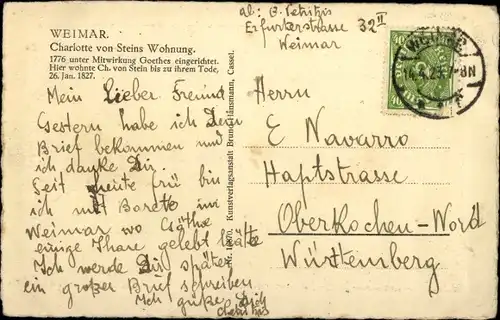 WEIMAR.
Charlotte von Steins Wohnung.
1776 unter Mitwirkung Goethes eingerichtet.
Hier wohnte Ch. von Stein bis zu ihrem Tode,
26. Jan. 1827.
Mein Lieber Freund
Gestern habe ich Dein
Brief bekommen und
ich danke Dir.
Seit heute frü bin
ich mit
Weimar wo Göthe
einige Jhare gelebt hätte
Ich werde Dir später
ein großer Brief schreiben
Ich grüße Dich
Kunstverlagsanstalt Bruno Hansmann, Cassel.
Erfurterstrasse 32 II
Weimar
40
WEIMAR
Herrn
E Navarro
Haptstrasse
Oberkochen-Nord
Württemberg